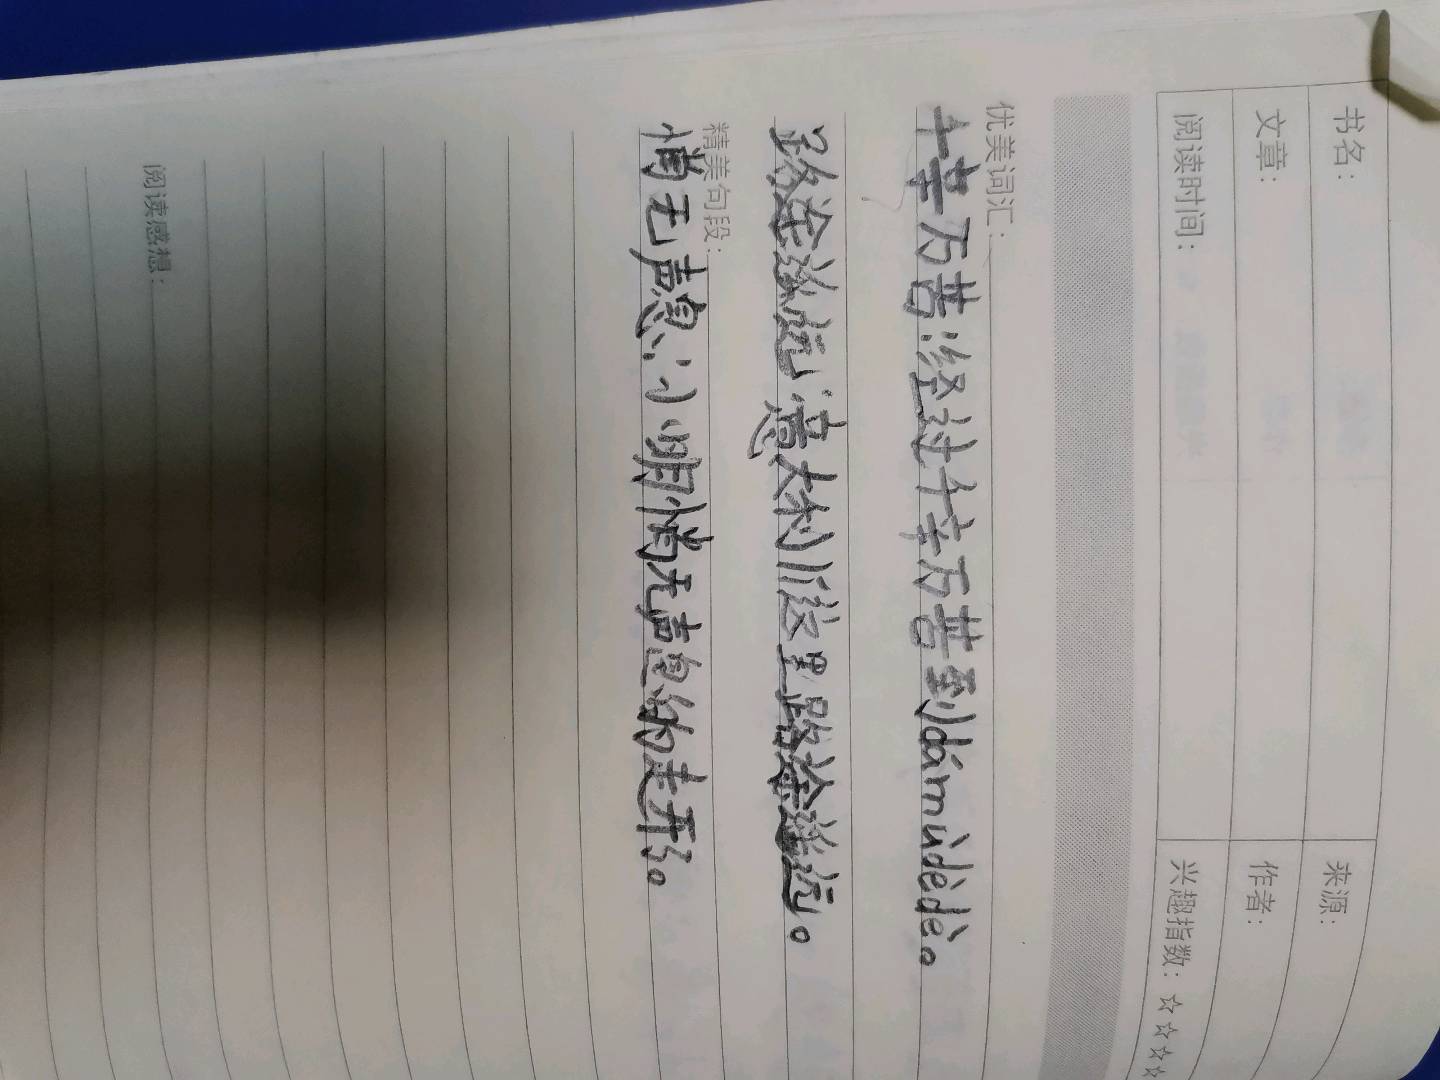 书名： 来源：
文章： 作者：
阅读时间： 兴趣指数：☆☆☆☆
优美词汇：
千辛万苦：经过千辛万苦到dámùdèdè。
路途遥远：意大利离这里路途遥远。
精美句段：
悄无声息：小明悄无声息的走开了。
阅读感想：